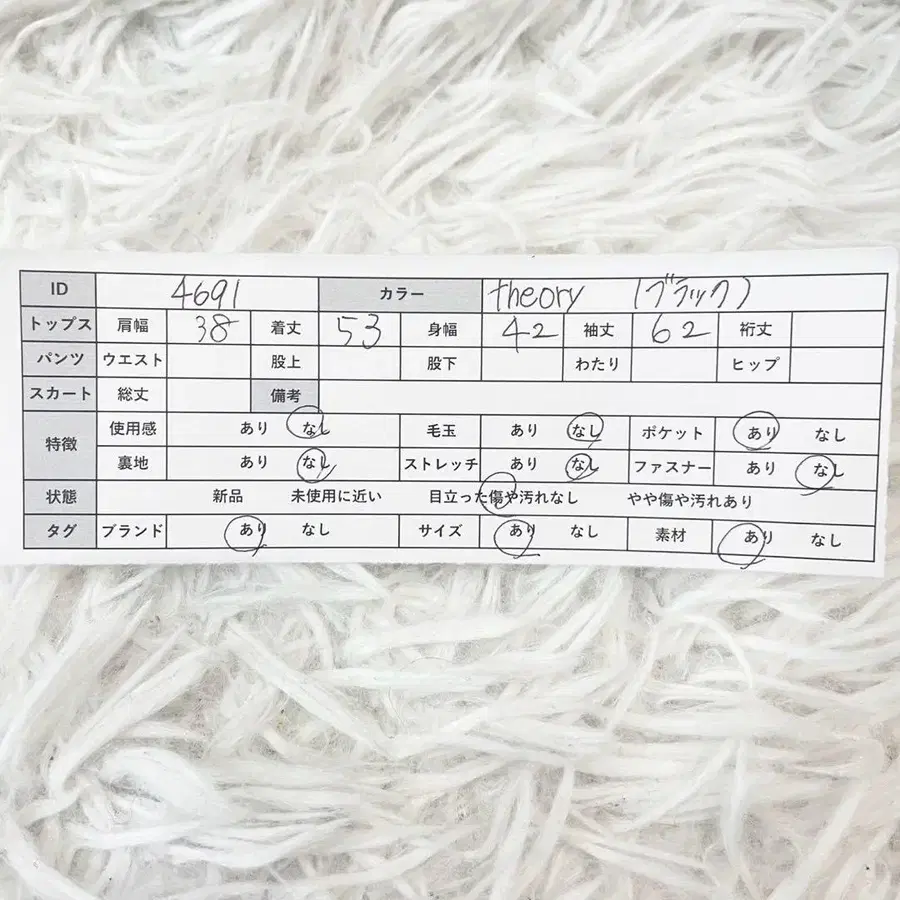 ID 4691 カラー theory (ブラック)
トップス 肩幅 38 着丈 53 身幅 42 袖丈 62 裄丈
パンツ ウエスト 股上 股下 わたり ヒップ
スカート 総丈 備考
特徴 使用感 あり なし 毛玉 あり なし ポケット あり なし
裏地 あり なし ストレッチ あり なし ファスナー あり なし
状態 新品 未使用に近い 目立った傷や汚れなし やや傷や汚れあり
タグ ブランド あり なし サイズ あり なし 素材 あり なし